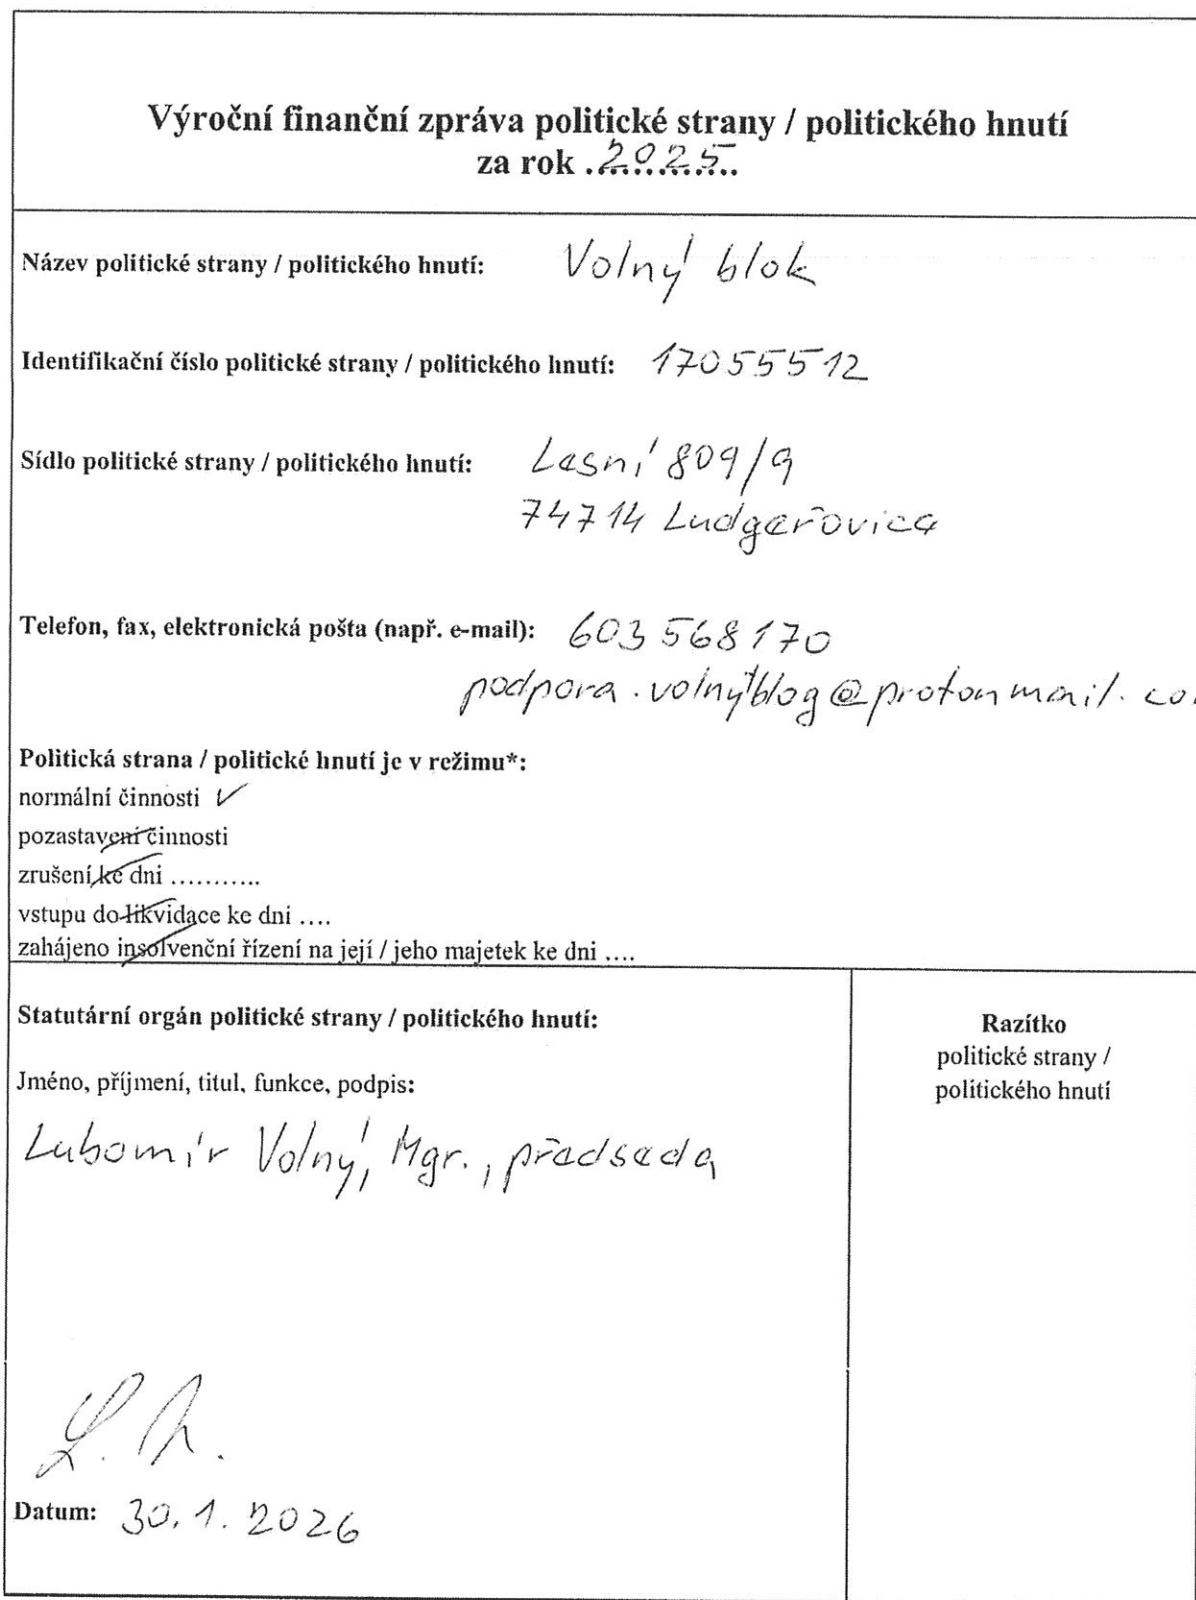 Výroční finanční zpráva politické strany / politického hnutí
za rok .2025..
Název politické strany / politického hnutí: Volný blok
Identifikační číslo politické strany / politického hnutí: 17055512
Sídlo politické strany / politického hnutí: Lesní 809/9
74714 Ludgeřovice
Telefon, fax, elektronická pošta (např. e-mail): 603 568 170
podpora.volnýblog@protonmail.co
Politická strana / politické hnutí je v režimu*:
normální činnosti ✓
pozastavení činnosti
zrušení ke dni ...........
vstupu do likvidace ke dni ....
zahájeno insolvenční řízení na její / jeho majetek ke dni ....
Statutární orgán politické strany / politického hnutí:
Jméno, příjmení, titul, funkce, podpis:
Lubomír Volný, Mgr., předseda
Datum: 30. 1. 2026
Razítko
politické strany /
politického hnutí